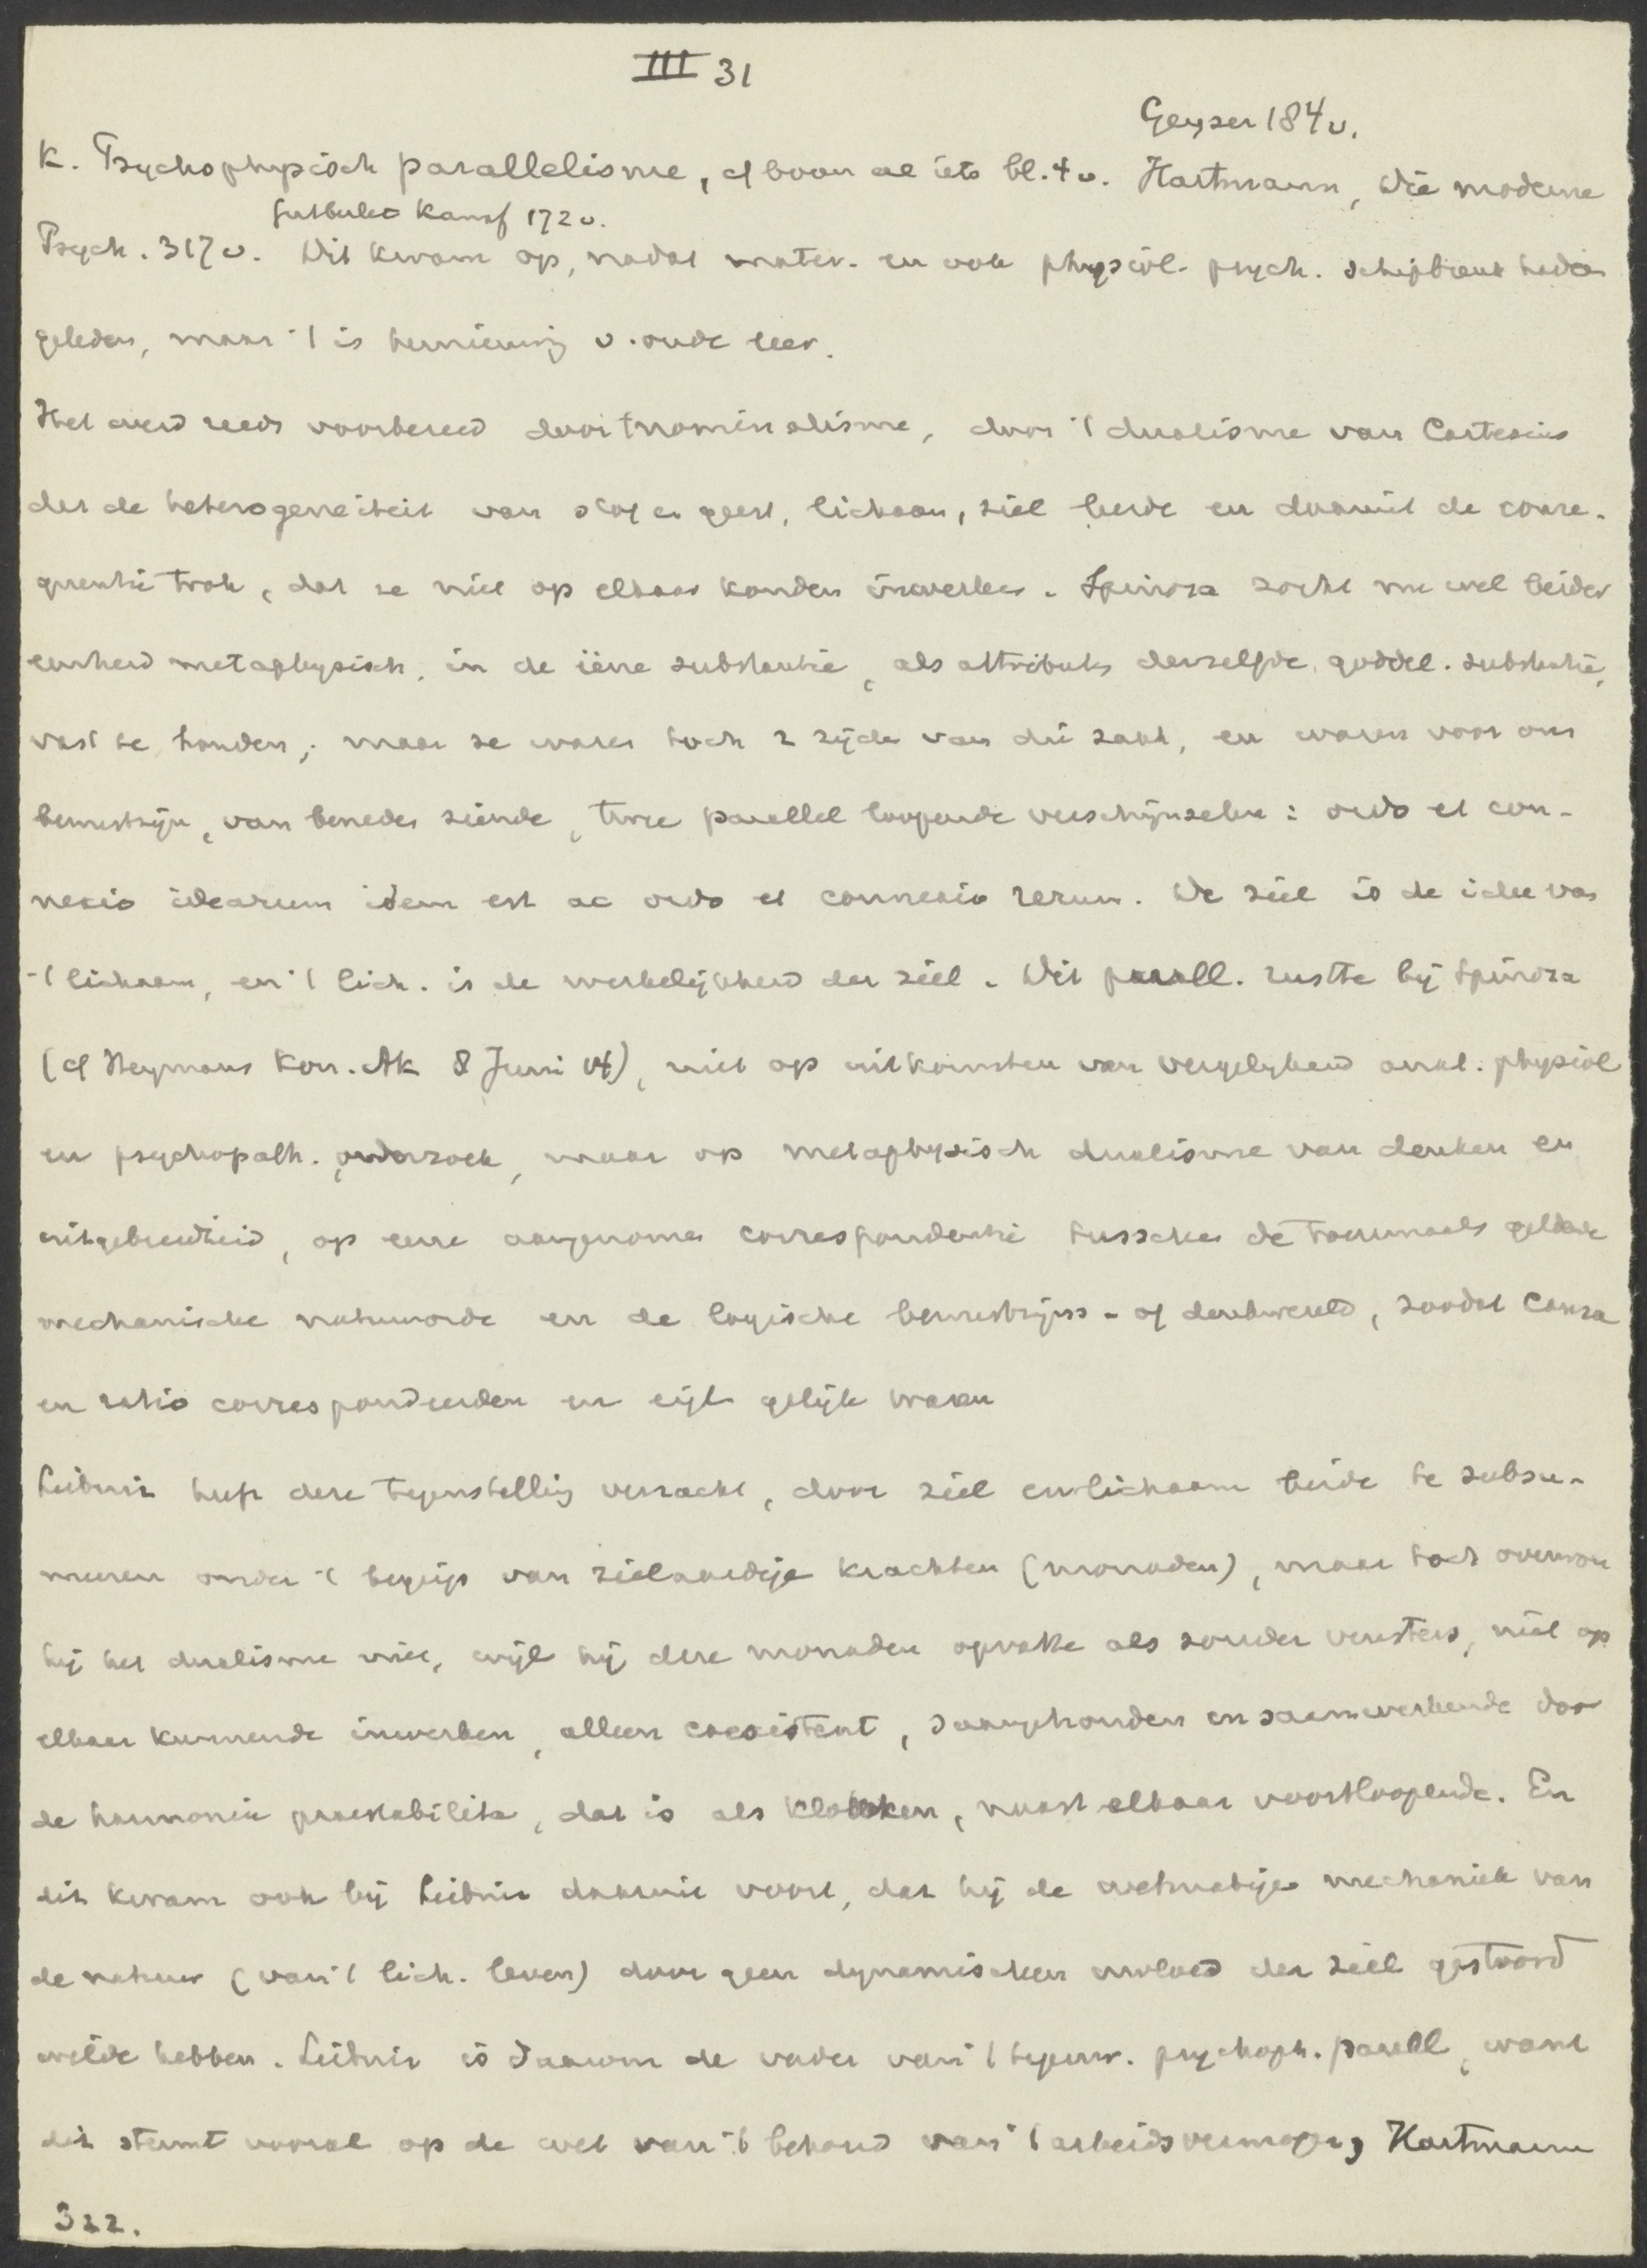 III 31
Geyser 184 v.
K. Psychophysisch parallelisme, cf boven al iets bl. 4 v. Hartmann, Die moderne
Gutberlet Kampf 172 v.
Psych. 317 v. Dit kwam op, nadat mater. en ook physiol. psych. schipbreuk hadden
geleden, maar 't is hernieuwing v. oude leer.
Het werd reeds voorbereid door 't nominalisme, door 't dualisme van Cartesius
der de heterogeneiteit van stof en geest, lichaam, ziel leerde en daaruit de conse-
quentie trok, dat ze niet op elkaar konden inwerken. Spinoza zocht nu wel beider
eenheid metaphysisch, in de ééne substantie, als attributen derzelfde goddel. substantie,
vast te houden; maar ze waren toch 2 zijden van die zaak, en waren voor ons
bewustzijn, van beneden ziende, twee parallel loopende verschijnselen: ordo et con-
nexio idearum idem est ac ordo et connexio rerum. De ziel is de idee van
't lichaam, en 't lich. is de werkelijkheid der ziel. Dit parall. rustte bij Spinoza
(cf Heymans Kon. Ak 8 Juni 14), niet op uitkomsten van vergelijkend anat. physiol
en psychopath. onderzoek, maar op metaphysisch dualisme van denken en
uitgebreidheid, op eene aangenomen correspondentie tusschen de toenmaals geldende
mechanische natuurorde en de logische bewustzijns- of denkwereld, zoodat causa
en ratio correspondeerden en eigl. gelijk waren
Leibniz heeft deze tegenstelling verzacht, door ziel en lichaam beide te subsu-
meeren onder 't begrip van zielaardige krachten (monaden), maar toch overwon
hij het dualisme niet, wijl hij deze monaden opvatte als zonder vensters, niet op
elkaar kunnende inwerken, alleen coexistent, saamgehouden en saamwerkende door
de harmonia praestabilita, dat is als klokken, naast elkaar voortloopende. En
dit kwam ook bij Leibniz daaruit voort, dat hij de wetmatige mechaniek van
de natuur (van 't lich. leven) door geen dynamischen invloed der ziel gestoord
wilde hebben. Leibniz is daarom de vader van 't tegenw. psychoph. parall, want
dit steunt vooral op de wet van 't behoud van 't arbeidsvermogen, Hartmann
322.